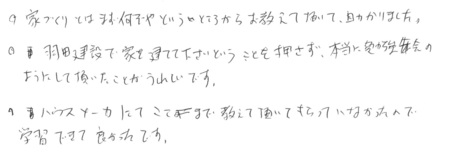 家づくりとはまず何ぞやというところからお教えて頂いて、助かりました。
羽田建設で家を建てて下さいということを押さず、本当に勉強会の
ようにして頂いたことがうれしいです。
ハウスメーカにてここまで教えて頂いてもらっていなかったので
学習できて良かったです。